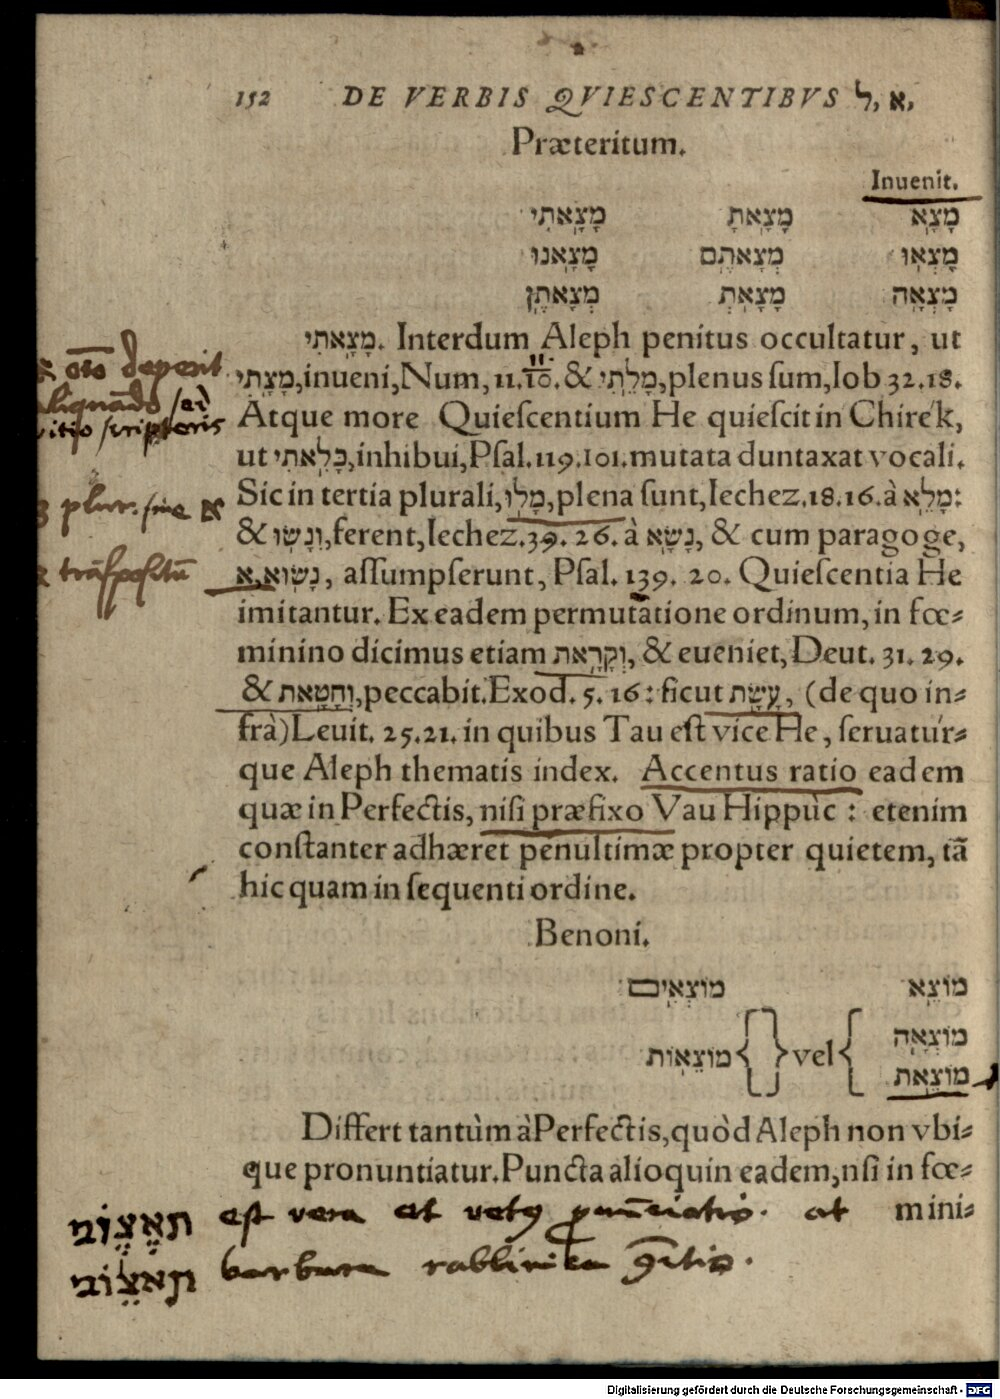 152 DE VERBIS QVIESCENTIBVS ל, א,
Præteritum.
Inuenit.
מָצָא מָצָאתָ מָצָאתִי
מָצְאוּ מְצָאתֶם מָצָאנוּ
מָצְאָה מָצָאת מְצָאתֶן
מָצָאתִי. Interdum Aleph penitus occultatur, ut
מָצָתִי, inueni, Num, 11.10. & מָלֵתִי, plenus ſum, Iob 32.18.
Atque more Quieſcentium He quieſcit in Chirek,
ut כָּלִאתִי, inhibui, Pſal. 119.101. mutata duntaxat vocali.
Sic in tertia plurali, מָלוּ, plena ſunt, Iechez. 18.16. à מָלֵא:
& וְנָשׂוּ, ferent, Iechez. 39. 26. à נָשָׂא, & cum paragoge,
נָשׂוּא, aſſumpſerunt, Pſal. 139. 20. Quieſcentia He
imitantur. Ex eadem permutatione ordinum, in fœ-
minino dicimus etiam וְקָרָאת, & eueniet, Deut. 31. 29.
& וְחָטָאת, peccabit. Exod. 5. 16: ſicut עָשָׂת, (de quo in-
frà) Leuit. 25.21. in quibus Tau eſt vice He, ſeruatur-
que Aleph thematis index. Accentus ratio eadem
quæ in Perfectis, niſi præfixo Vau Hippùc : etenim
conſtanter adhæret penultimæ propter quietem, tã
hic quam in ſequenti ordine.
Benoni.
מוֹצֵא מוֹצְאִים
מוֹצְאָה
vel מוֹצְאוֹת
מוֹצֵאת
Differt tantùm à Perfectis, quòd Aleph non vbi-
que pronuntiatur. Puncta alioquin eadem, nſi in fœ-
mini-
deperit
plur. ſine א
est vera et at
barbara rabbinica
Digitalisierung gefördert durch die Deutsche Forschungsgemeinschaft - DFG